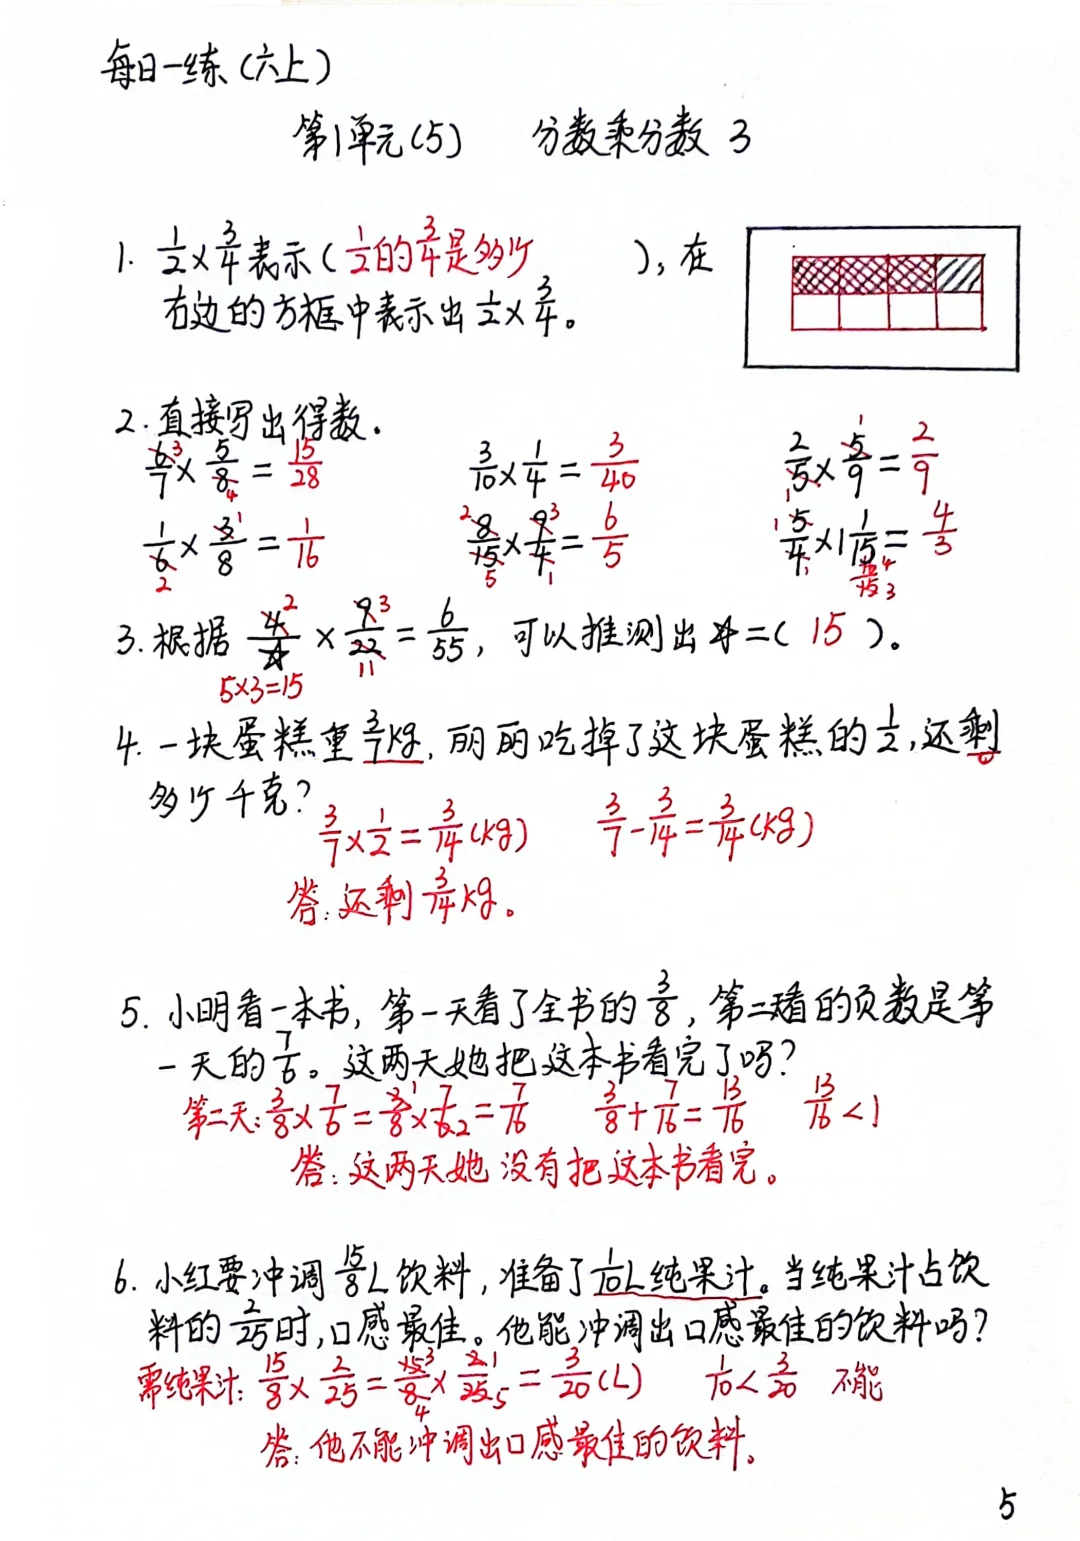 每日一练(六上)
第1单元(5) 分数乘分数 3
1. 1/2×3/4表示(1/2的3/4是多少 ),在
右边的方框中表示出1/2×3/4。
2.直接写出得数.
6/7×5/8=15/28 3/10×1/4=3/40 2/5×5/9=2/9
3 4 1 1
1/6×3/8=1/16 8/15×9/4=6/5 5/4×1 1/15=4/3
2 1 2 5 3 1 1 1 16/15 4 3
3.根据 4/☆×9/22=6/55, 可以推测出☆=( 15 )。
2 3 11
5×3=15
4. 一块蛋糕重3/7kg, 丽丽吃掉了这块蛋糕的1/2,还剩
多少千克?
3/7×1/2=3/14(kg) 3/7-3/14=3/14(kg)
答:还剩3/14kg。
5. 小明看一本书, 第一天看了全书的3/8, 第二天看的页数是第
一天的7/6。这两天她把这本书看完了吗?
第二天:3/8×7/6=3/8×7/6=7/16 3/8+7/16=13/16 13/16<1
1 2
答:这两天她没有把这本书看完。
6. 小红要冲调15/8L饮料, 准备了1/10L纯果汁。当纯果汁占饮
料的2/25时,口感最佳。他能冲调出口感最佳的饮料吗?
需纯果汁:15/8×2/25=15/8×2/25=3/20(L) 1/10<3/20 不能
3 4 1 5
答:他不能冲调出口感最佳的饮料。
5